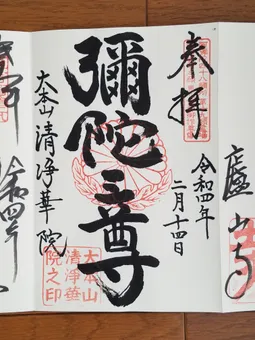 奉拝
令和四年
二月十四日
彌陀三尊
大本山 清浄華院
大本山
清浄華
院之印
廬山寺
令和四年